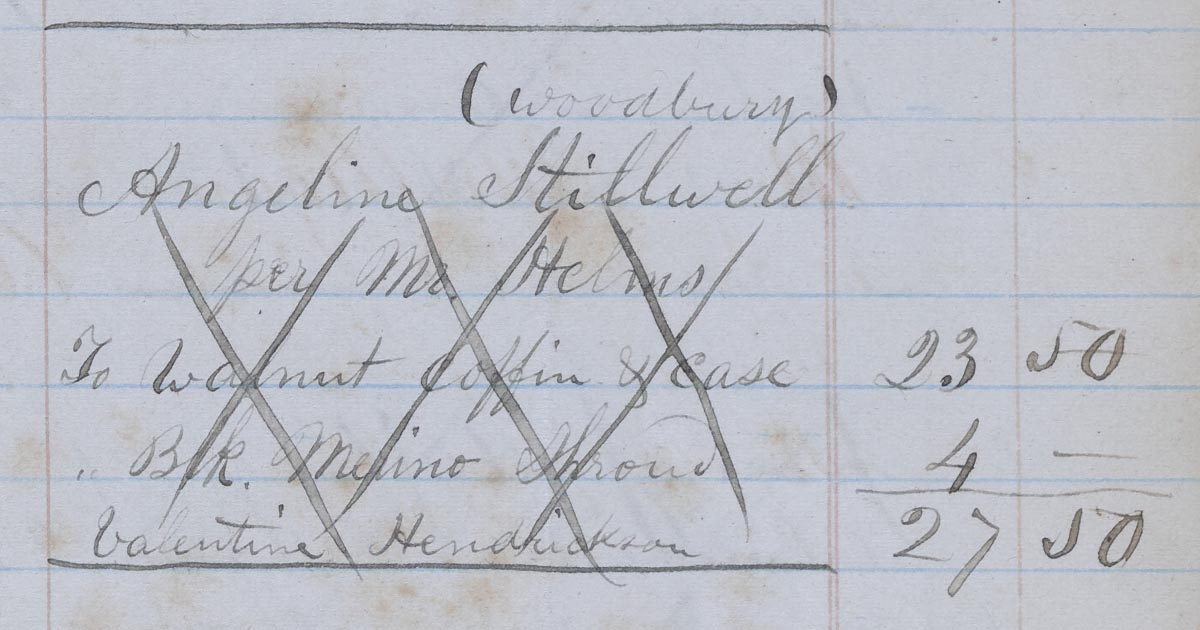 (Woodbury)
Angeline Stillwell
per Mr. Helms
To Walnut Coffin & Case 23 50
" Blk. Merino Shroud 4 —
Valentine Hendrickson 27 50